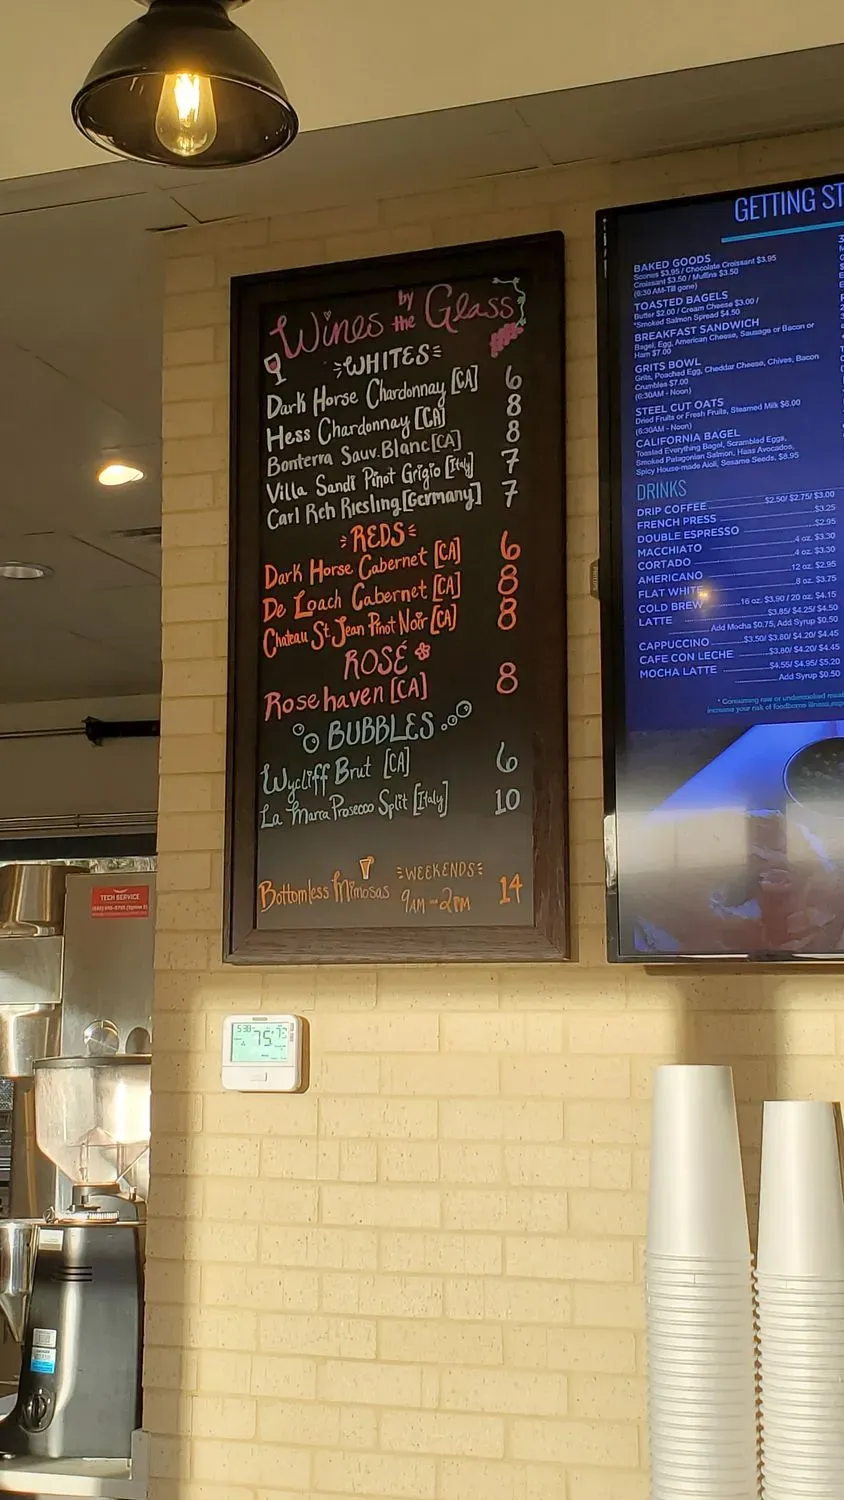 Wines by the Glass
WHITES
Dark Horse Chardonnay [CA] 6
Hess Chardonnay [CA] 8
Bonterra Sauv. Blanc [CA] 8
Villa Sandi Pinot Grigio [Italy] 7
Carl Reh Riesling [Germany] 7
REDS
Dark Horse Cabernet [CA] 6
De Loach Cabernet [CA] 8
Chateau St. Jean Pinot Noir [CA] 8
ROSÉ
Rosehaven [CA] 8
BUBBLES
Wycliff Brut [CA] 6
La Marca Prosecco Split [Italy] 10
WEEKENDS
Bottomless Mimosas 9AM-2PM 14
GETTING ST
BAKED GOODS
Scones $3.95 / Chocolate Croissant $3.95
Croissant $3.50 / Muffins $3.50
(6:30 AM-Till gone)
TOASTED BAGELS
Butter $2.00 / Cream Cheese $3.00 /
*Smoked Salmon Spread $4.50
BREAKFAST SANDWICH
Bagel, Egg, American Cheese, Sausage or Bacon or
Ham $7.00
GRITS BOWL
Grits, Poached Egg, Cheddar Cheese, Chives, Bacon
Crumbles $7.00
(6:30AM - Noon)
STEEL CUT OATS
Dried Fruits or Fresh Fruits, Steamed Milk $6.00
(6:30AM - Noon)
CALIFORNIA BAGEL
Toasted Everything Bagel, Scrambled Eggs,
Smoked Patagonian Salmon, Haas Avocados,
Spicy House-made Aioli, Sesame Seeds, $8.95
DRINKS
DRIP COFFEE $2.50/ $2.75/ $3.00
FRENCH PRESS $3.25
DOUBLE ESPRESSO $2.95
MACCHIATO 4 oz. $3.30
CORTADO 4 oz. $3.30
AMERICANO 12 oz. $2.95
FLAT WHITE 8 oz. $3.75
COLD BREW 16 oz. $3.90 / 20 oz. $4.15
LATTE $3.85/ $4.25/ $4.50
Add Mocha $0.75, Add Syrup $0.50
CAPPUCCINO $3.50/ $3.80/ $4.20/ $4.45
CAFE CON LECHE $3.80/ $4.20/ $4.45
MOCHA LATTE $4.55/ $4.95/ $5.20
Add Syrup $0.50
* Consuming raw or undercooked meat
increase your risk of foodborne illness,
TECH SERVICE
5:38
75